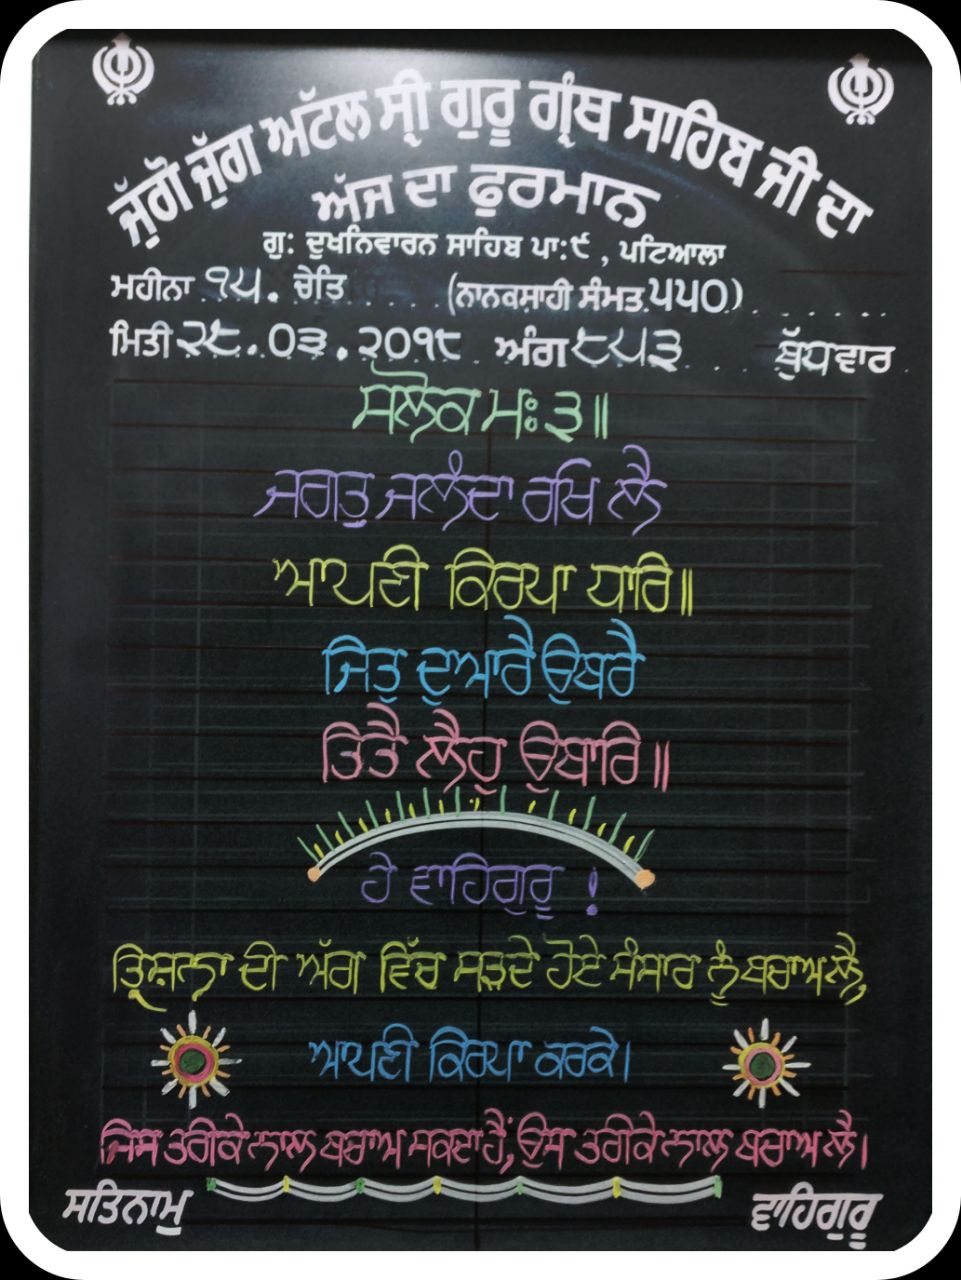 ਜੁੱਗੋ ਜੁੱਗ ਅੱਟੱਲ ਸ੍ਰੀ ਗੁਰੂ ਗ੍ਰੰਥ ਸਾਹਿਬ ਜੀ ਦਾ
ਅੱਜ ਦਾ ਫੁਰਮਾਨ
ਗੁ: ਦੁਖਨਿਵਾਰਨ ਸਾਹਿਬ ਪਾ:੯, ਪਟਿਆਲਾ
ਮਹੀਨਾ ੧੫. ਚੇਤਿ (ਨਾਨਕਸ਼ਾਹੀ ਸੰਮਤ ੫੫੦)
ਮਿਤੀ ੨੮.੦੩.੨੦੧੮ ਅੰਗ ੮੫੩ ਬੁੱਧਵਾਰ
ਸਲੋਕ ਮਃ ੩॥
ਜਗਤੁ ਜਲੰਦਾ ਰਖਿ ਲੈ
ਆਪਣੀ ਕਿਰਪਾ ਧਾਰਿ॥
ਜਿਤੁ ਦੁਆਰੈ ਉਬਰੈ
ਤਿਤੈ ਲੈਹੁ ਉਬਾਰਿ॥
ਹੇ ਵਾਹਿਗੁਰੂ !
ਤ੍ਰਿਸ਼ਨਾ ਦੀ ਅੱਗ ਵਿੱਚ ਸੜਦੇ ਹੋਏ ਸੰਸਾਰ ਨੂੰ ਬਚਾਅ ਲੈ,
ਆਪਣੀ ਕਿਰਪਾ ਕਰਕੇ।
ਜਿਸ ਤਰੀਕੇ ਨਾਲ ਬਚਾਅ ਸਕਦਾ ਹੈਂ, ਉਸ ਤਰੀਕੇ ਨਾਲ ਬਚਾਅ ਲੈ।
ਸਤਿਨਾਮੁ ਵਾਹਿਗੁਰੂ